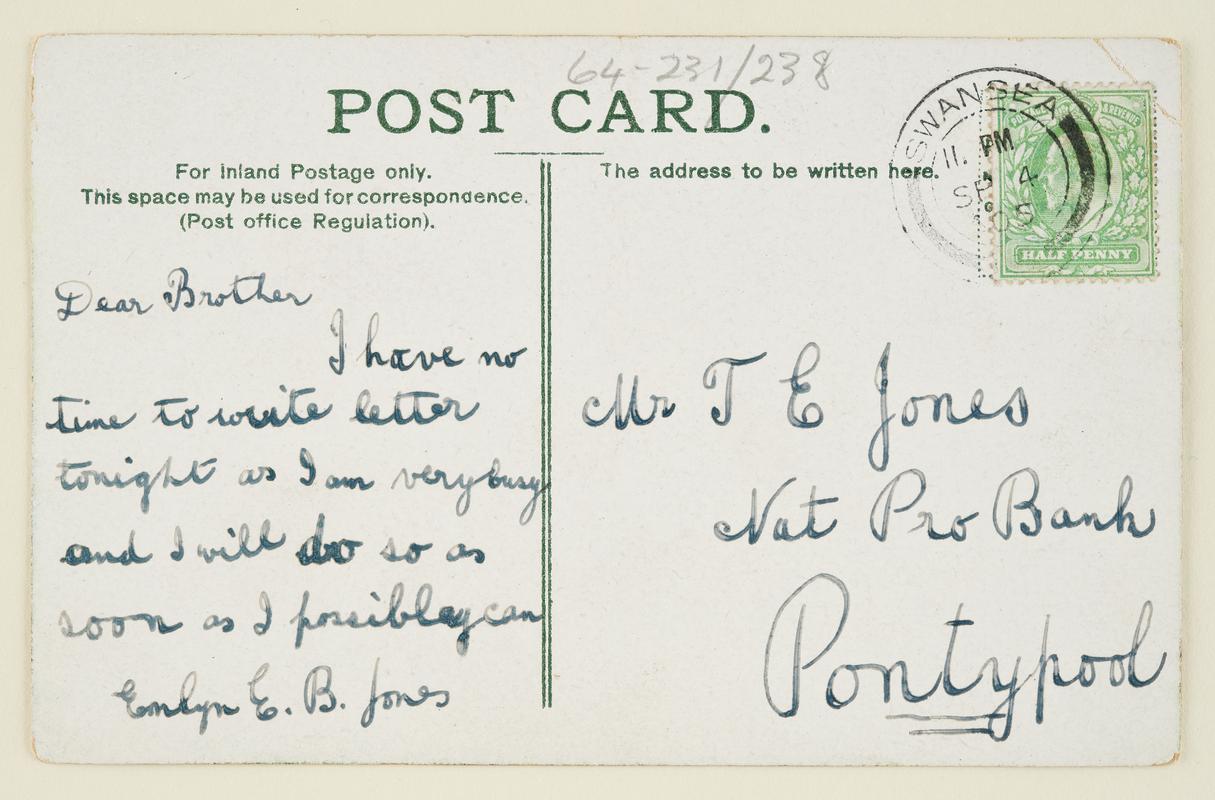 64-231/238
POST CARD.
For Inland Postage only.
This space may be used for correspondence.
(Post office Regulation).
The address to be written here.
SWANSEA
11. PM
SP 4
05
HALFPENNY
Dear Brother
I have no
time to write letter
tonight as I am very busy
and I will do so as
soon as I possibley can
Emlyn E. B. Jones
Mr T E Jones
Nat Pro Bank
Pontypool